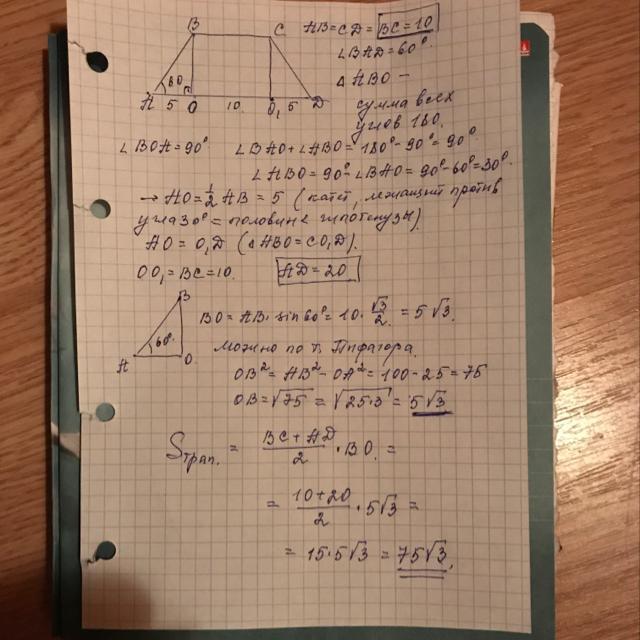 B C AB=CD= BC=10
∠BAD=60°.
△ABO -
60
A 5 O 10. O₁ 5 D
сумма всех
углов 180.
∠BOA=90° ∠BAO+∠ABO=180°-90°=90°.
∠ABO=90°-∠BAO=90°-60°=30°.
→ AO=½AB=5 (катет, лежащий против
угла 30° = половине гипотенузы).
AO=O₁D (△ABO=CO₁D).
OO₁=BC=10. AD=20
B
BO=AB·sin60°=10·√3/2=5√3.
60°
можно по т. Пифагора.
A O
OB²=AB²-OA²=100-25=75
OB=√75=√25·3=5√3
Sтрап. = (BC+AD)/2 · BO. =
= (10+20)/2 · 5√3 =
= 15·5√3 = 75√3.